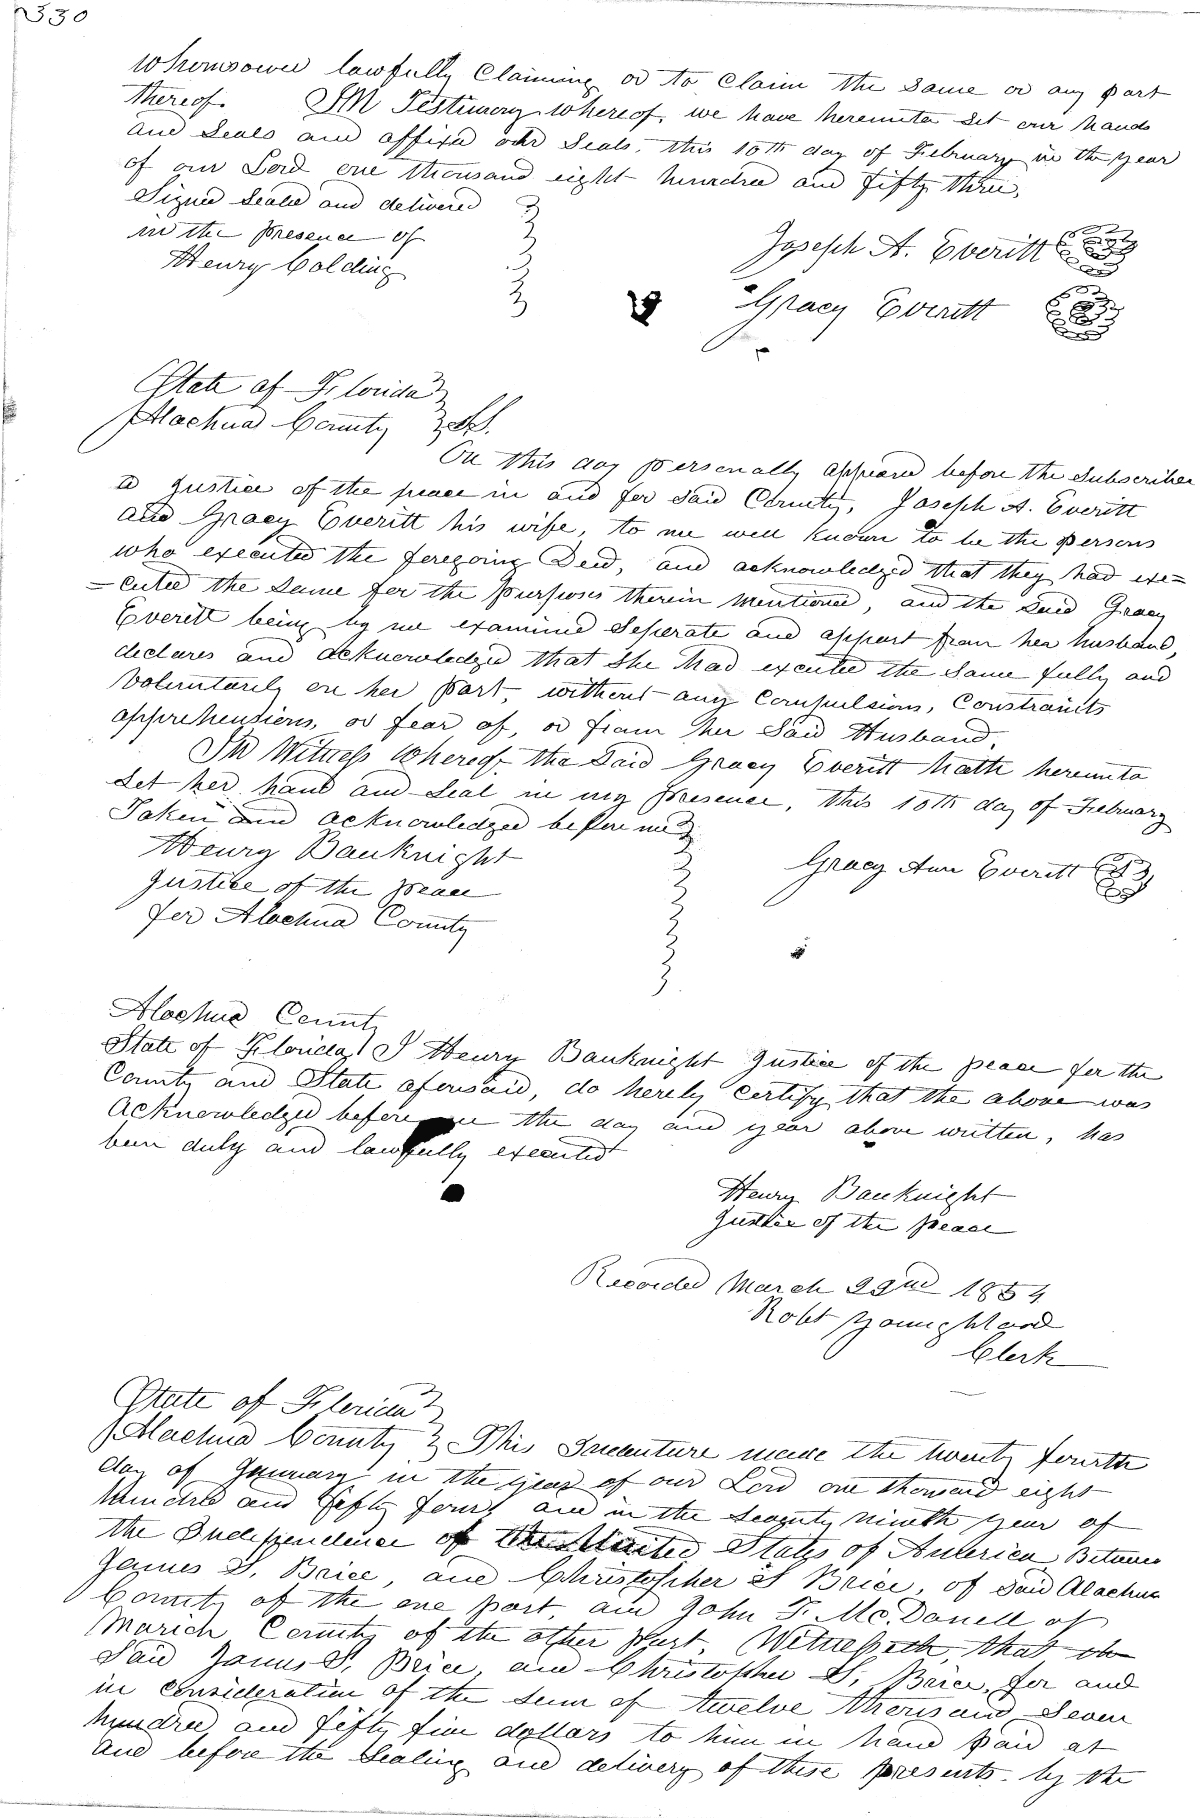 330
Whomsoever lawfully Claiming or to Claim the Same or any part
thereof. IN Testimony whereof, we have hereunto Set our hands
and Seals and affixed our Seals, this 10th day of February in the year
of our Lord one thousand eight hundred and fifty three,
Signed Sealed and delivered
in the presence of
Henry Colding
Joseph A. Everitt
Gracy Everitt
State of Florida
Alachua County SS.
On this day personally appeared before the Subscriber
a Justice of the peace in and for Said County, Joseph A. Everitt
and Gracy Everitt his wife, to me well known to be the persons
who executed the foregoing Deed, and acknowledged that they had exe=
=cuted the Same for the purposes therein mentioned, and the Said Gracy
Everitt being by me examined Seperate and appart from her husband,
declares and acknowledged that She had executed the Same fully and
Voluntarily on her part, without any Compulsion, Constraints
apprehensions, or fear of, or from her Said Husband.
IN Witness Whereof the Said Gracy Everitt hath hereunto
Set her hand and Seal in my presence, this 10th day of February
Taken and acknowledged before me
Henry Bauknight
Justice of the peace
for Alachua County
Gracy Ann Everitt
Alachua County
State of Florida, I Henry Bauknight Justice of the peace for the
County and State aforesaid, do hereby Certify that the above was
Acknowledged before me the day and year above written, has
been duly and lawfully executed
Henry Bauknight
Justice of the peace
Recorded March 22nd 1854
Robt
Clerk
State of Florida
Alachua County This Indenture made the twenty fourth
day of January in the year of our Lord one thousand eight
hundred and fifty four, and in the Seventy nineth year of
the Independence of the United States of America Between
James S. Brice, and Christopher S Brice, of Said Alachua
County of the one part, and John F. McDonell of
Marion County of the other part, Witnesseth, that the
Said James S, Brice, and Christopher S, Brice, for and
in consideration of the Sum of twelve thousand Seven
hundred and fifty five dollars to him in hand paid at
and before the Sealing and delivery of these presents. by the